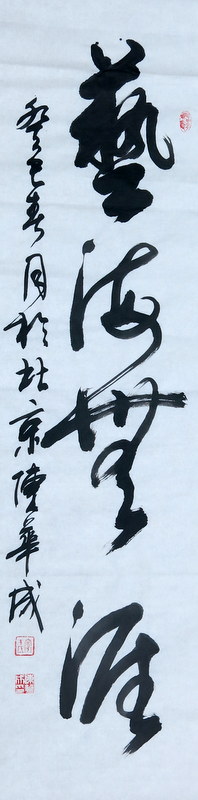 藝海無涯
癸巳春月於北京陳華成